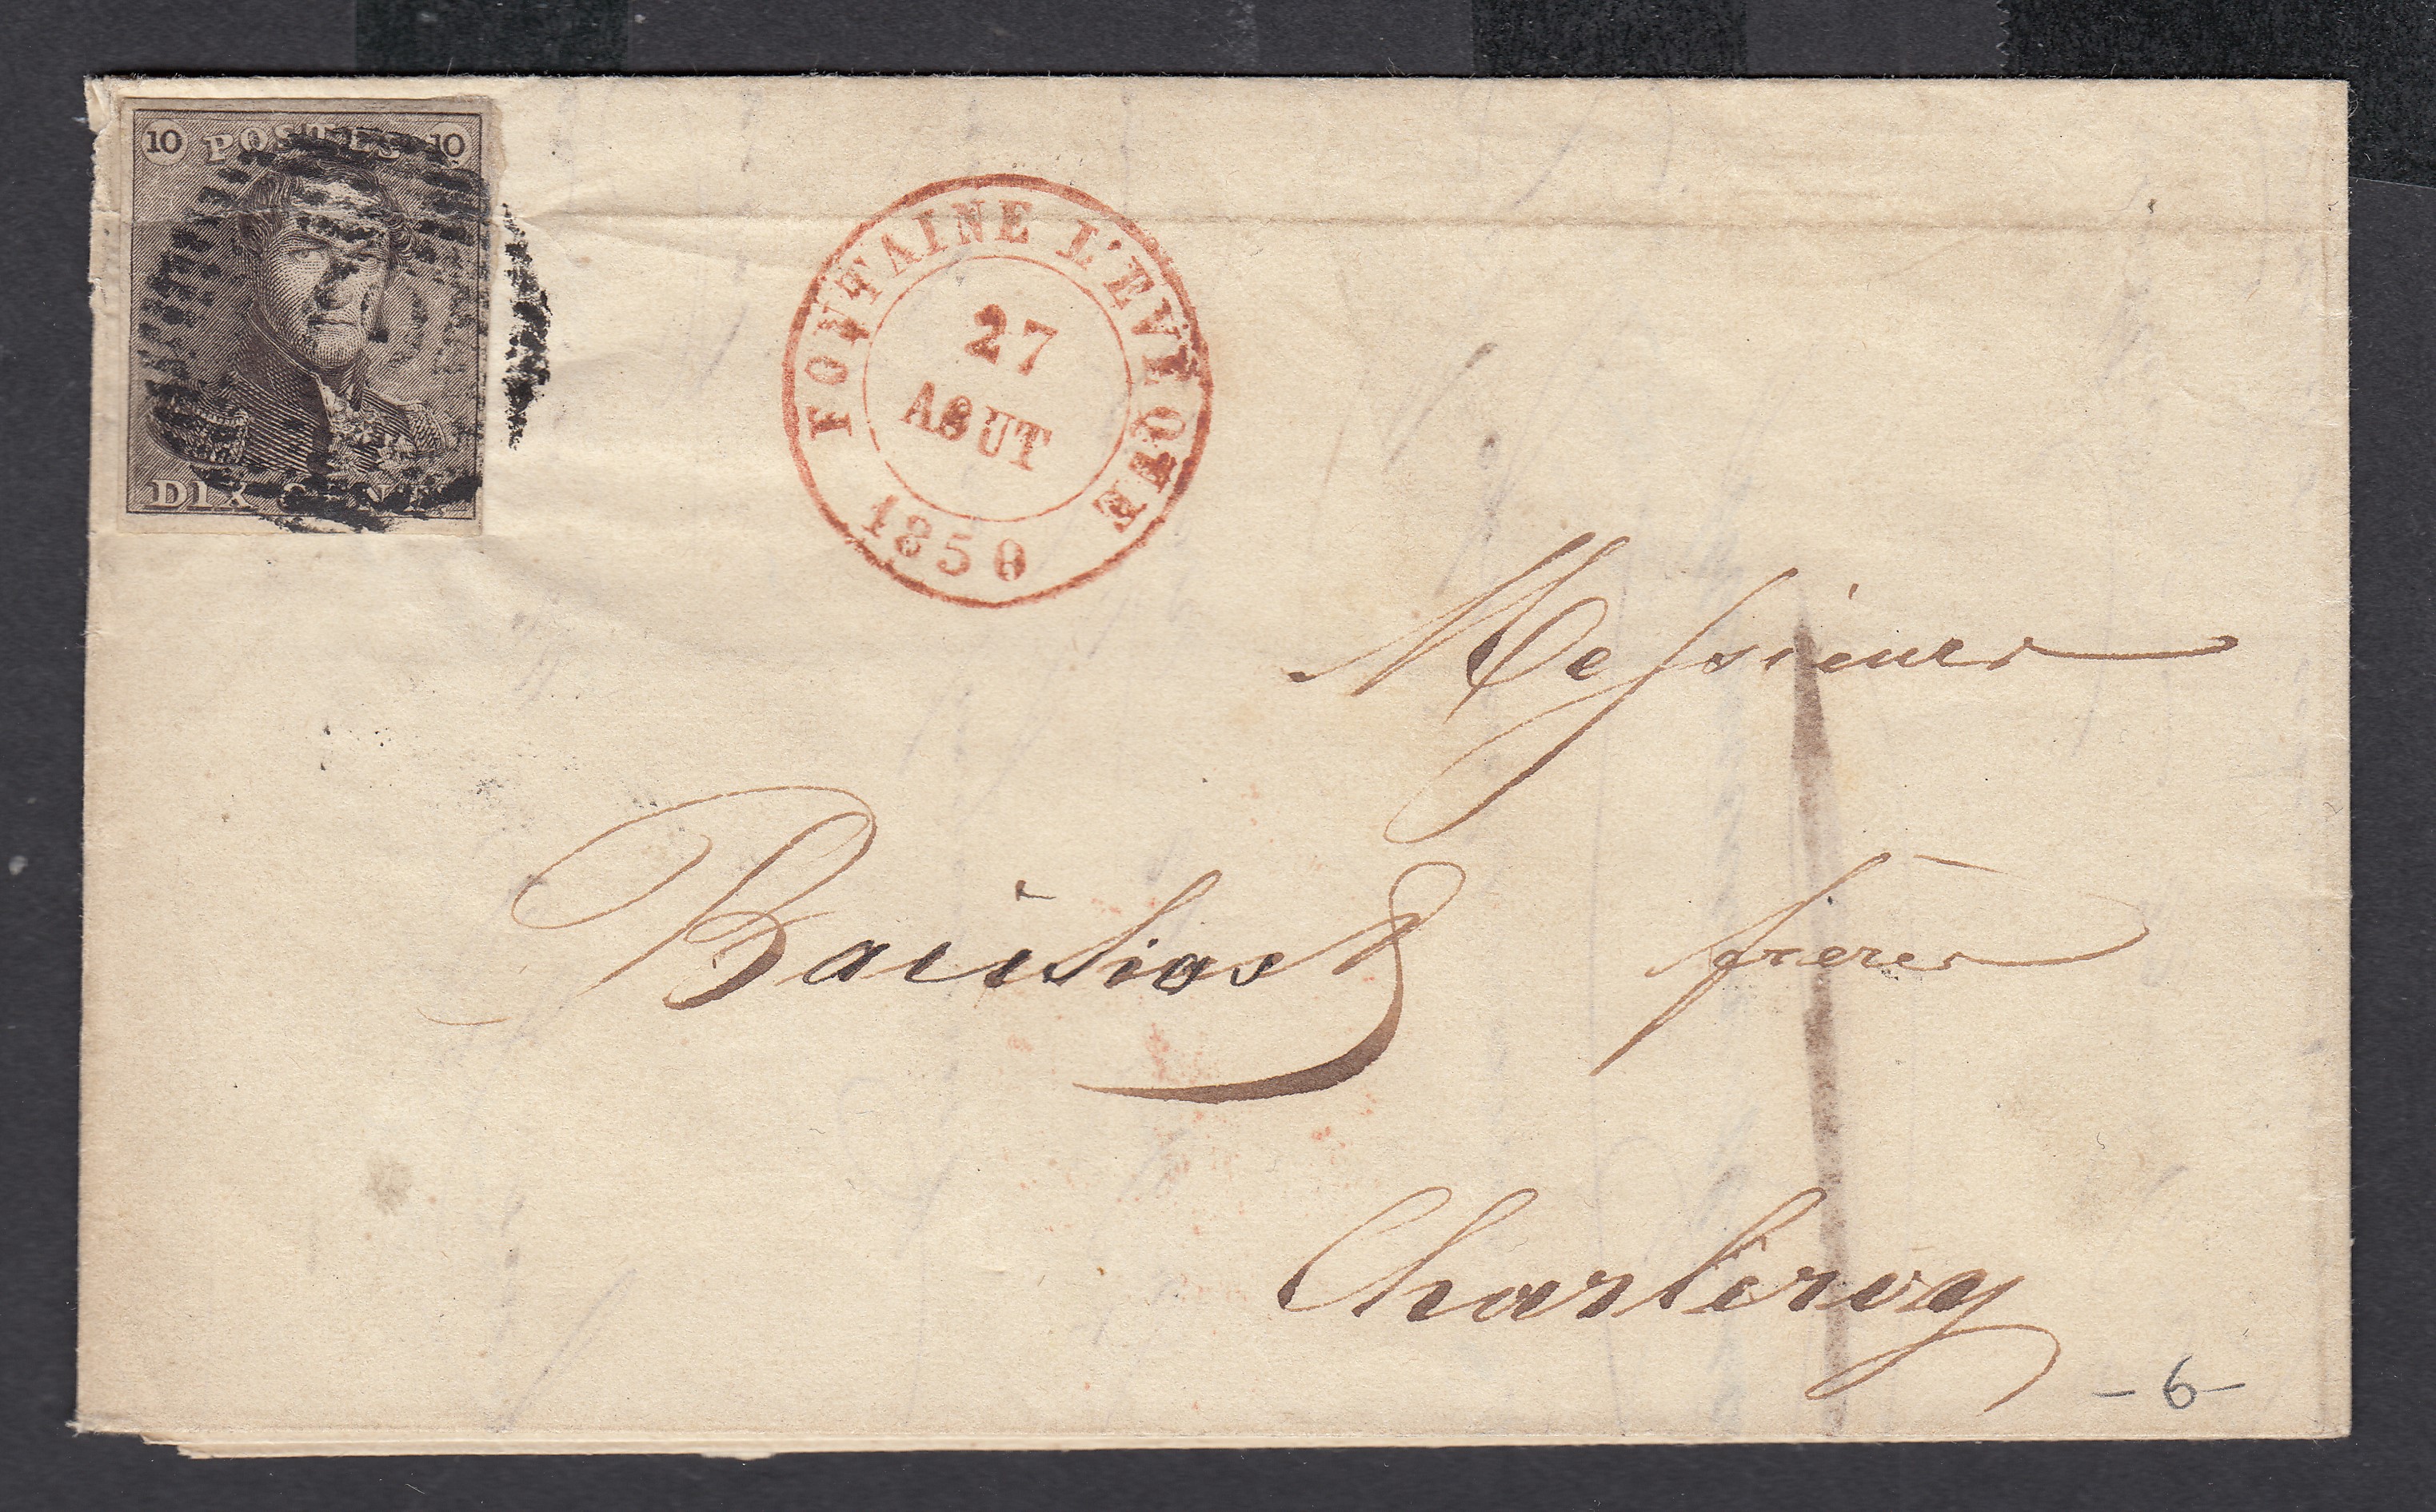 10 POSTES 10
DIX CENT
FONTAINE L'EVEQUE
27
AOUT
1850
Messieurs
frères
Charleroy
-6-